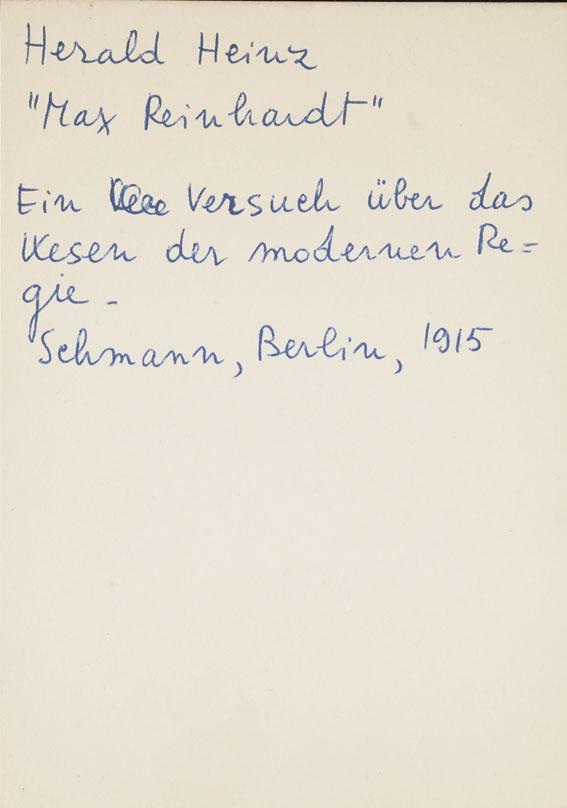 Herald Heinz
"Max Reinhardt"
Ein Versuch über das
Wesen der modernen Re=
gie -
Lehmann, Berlin, 1915